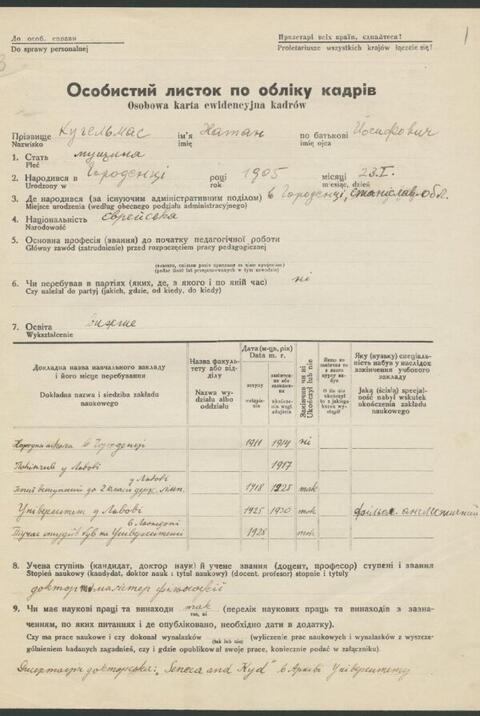 До особ. справи
Do sprawy personalnej
Пролетарі всіх країн, єднайтеся!
Proletariusze wszystkich krajów łączcie się!
1
Особистий листок по обліку кадрів
Osobowa karta ewidencyjna kadrów
Прізвище Кугельмас ім'я Натан по батькові Йосифович
Nazwisko imię imię ojca
1. Стать мущина
Płeć
2. Народився в Городенці році 1905 місяці 23.I.
Urodzony w rok miesiąc, dzień
3. Де народився (за існуючим адміністративним поділом) в Городенці, Станислав. обл.
Miejsce urodzenia (według obecnego podziału administracyjnego)
4. Національність Єврейська
Narodowość
5. Основна професія (звання) до початку педагогічної роботи
Główny zawód (zatrudnienie) przed rozpoczęciem pracy pedagogicznej
6. Чи перебував в партіях (яких, де, з якого і по якій час) ні
Czy należał do partyj (jakich, gdzie, od kiedy, do kiedy)
7. Освіта вижше
Wykształcenie
Докладна назва навчального закладу і його місце перебування
Dokładna nazwa i siedziba zakładu naukowego
Назва факультету або відділу
Nazwa wydziału albo oddziału
Дата (м-ць, рік)
Data m. r.
вступу
wstąpienia
Закінчив чи ні
Ukończył lub nie
Яку (вузьку) спеціальність набув у наслідок закінчення учбового закладу
Jaką (ścisłą) specjalność nabył wskutek ukończenia zakładu naukowego
Народна школа в Городенці 1911 1914 ні
у Львові 1917
у Львові
до 2 класи держ. гімн. 1918 1925 так
Університет у Львові 1925 1930 так англ
в
на Університеті 1928 так
8. Учена ступінь (кандидат, доктор наук) й учене звання (доцент, професор) ступені і звання
Stopień naukowy (kandydat, doktor nauk i tytuł naukowy) (docent, profesor) stopnie i tytuły
доктор магістер філософії
9. Чи має наукові праці та винаходи так (перелік наукових праць та винаходів з зазначенням,
по яких питаннях і де опубліковано, необхідно дати в додатку).
Czy ma prace naukowe i czy dokonał wynalazków (tak lub nie) (wyliczenie prac naukowych i wynalazków z wyszczególnieniem
badanych zagadnień, czy i gdzie opublikował swoje prace, koniecznie podać w załączniku).
Дисертація докторська: "Seneca and Kyd" в Архіві Університету